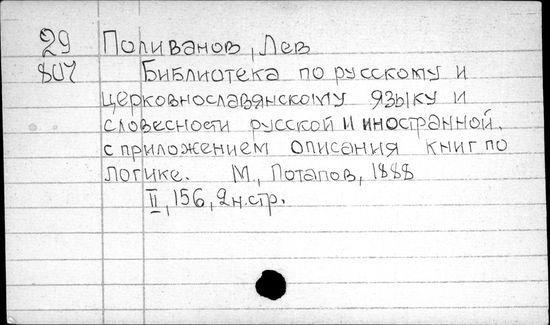 29 Поливанов, Лев
807 Библиотека по русскому и
церковнославянскому языку и
словесности русской и иностранной.
с приложением описания книг по
логике. М., Потапов, 1888
II, 156, 2 н.стр.